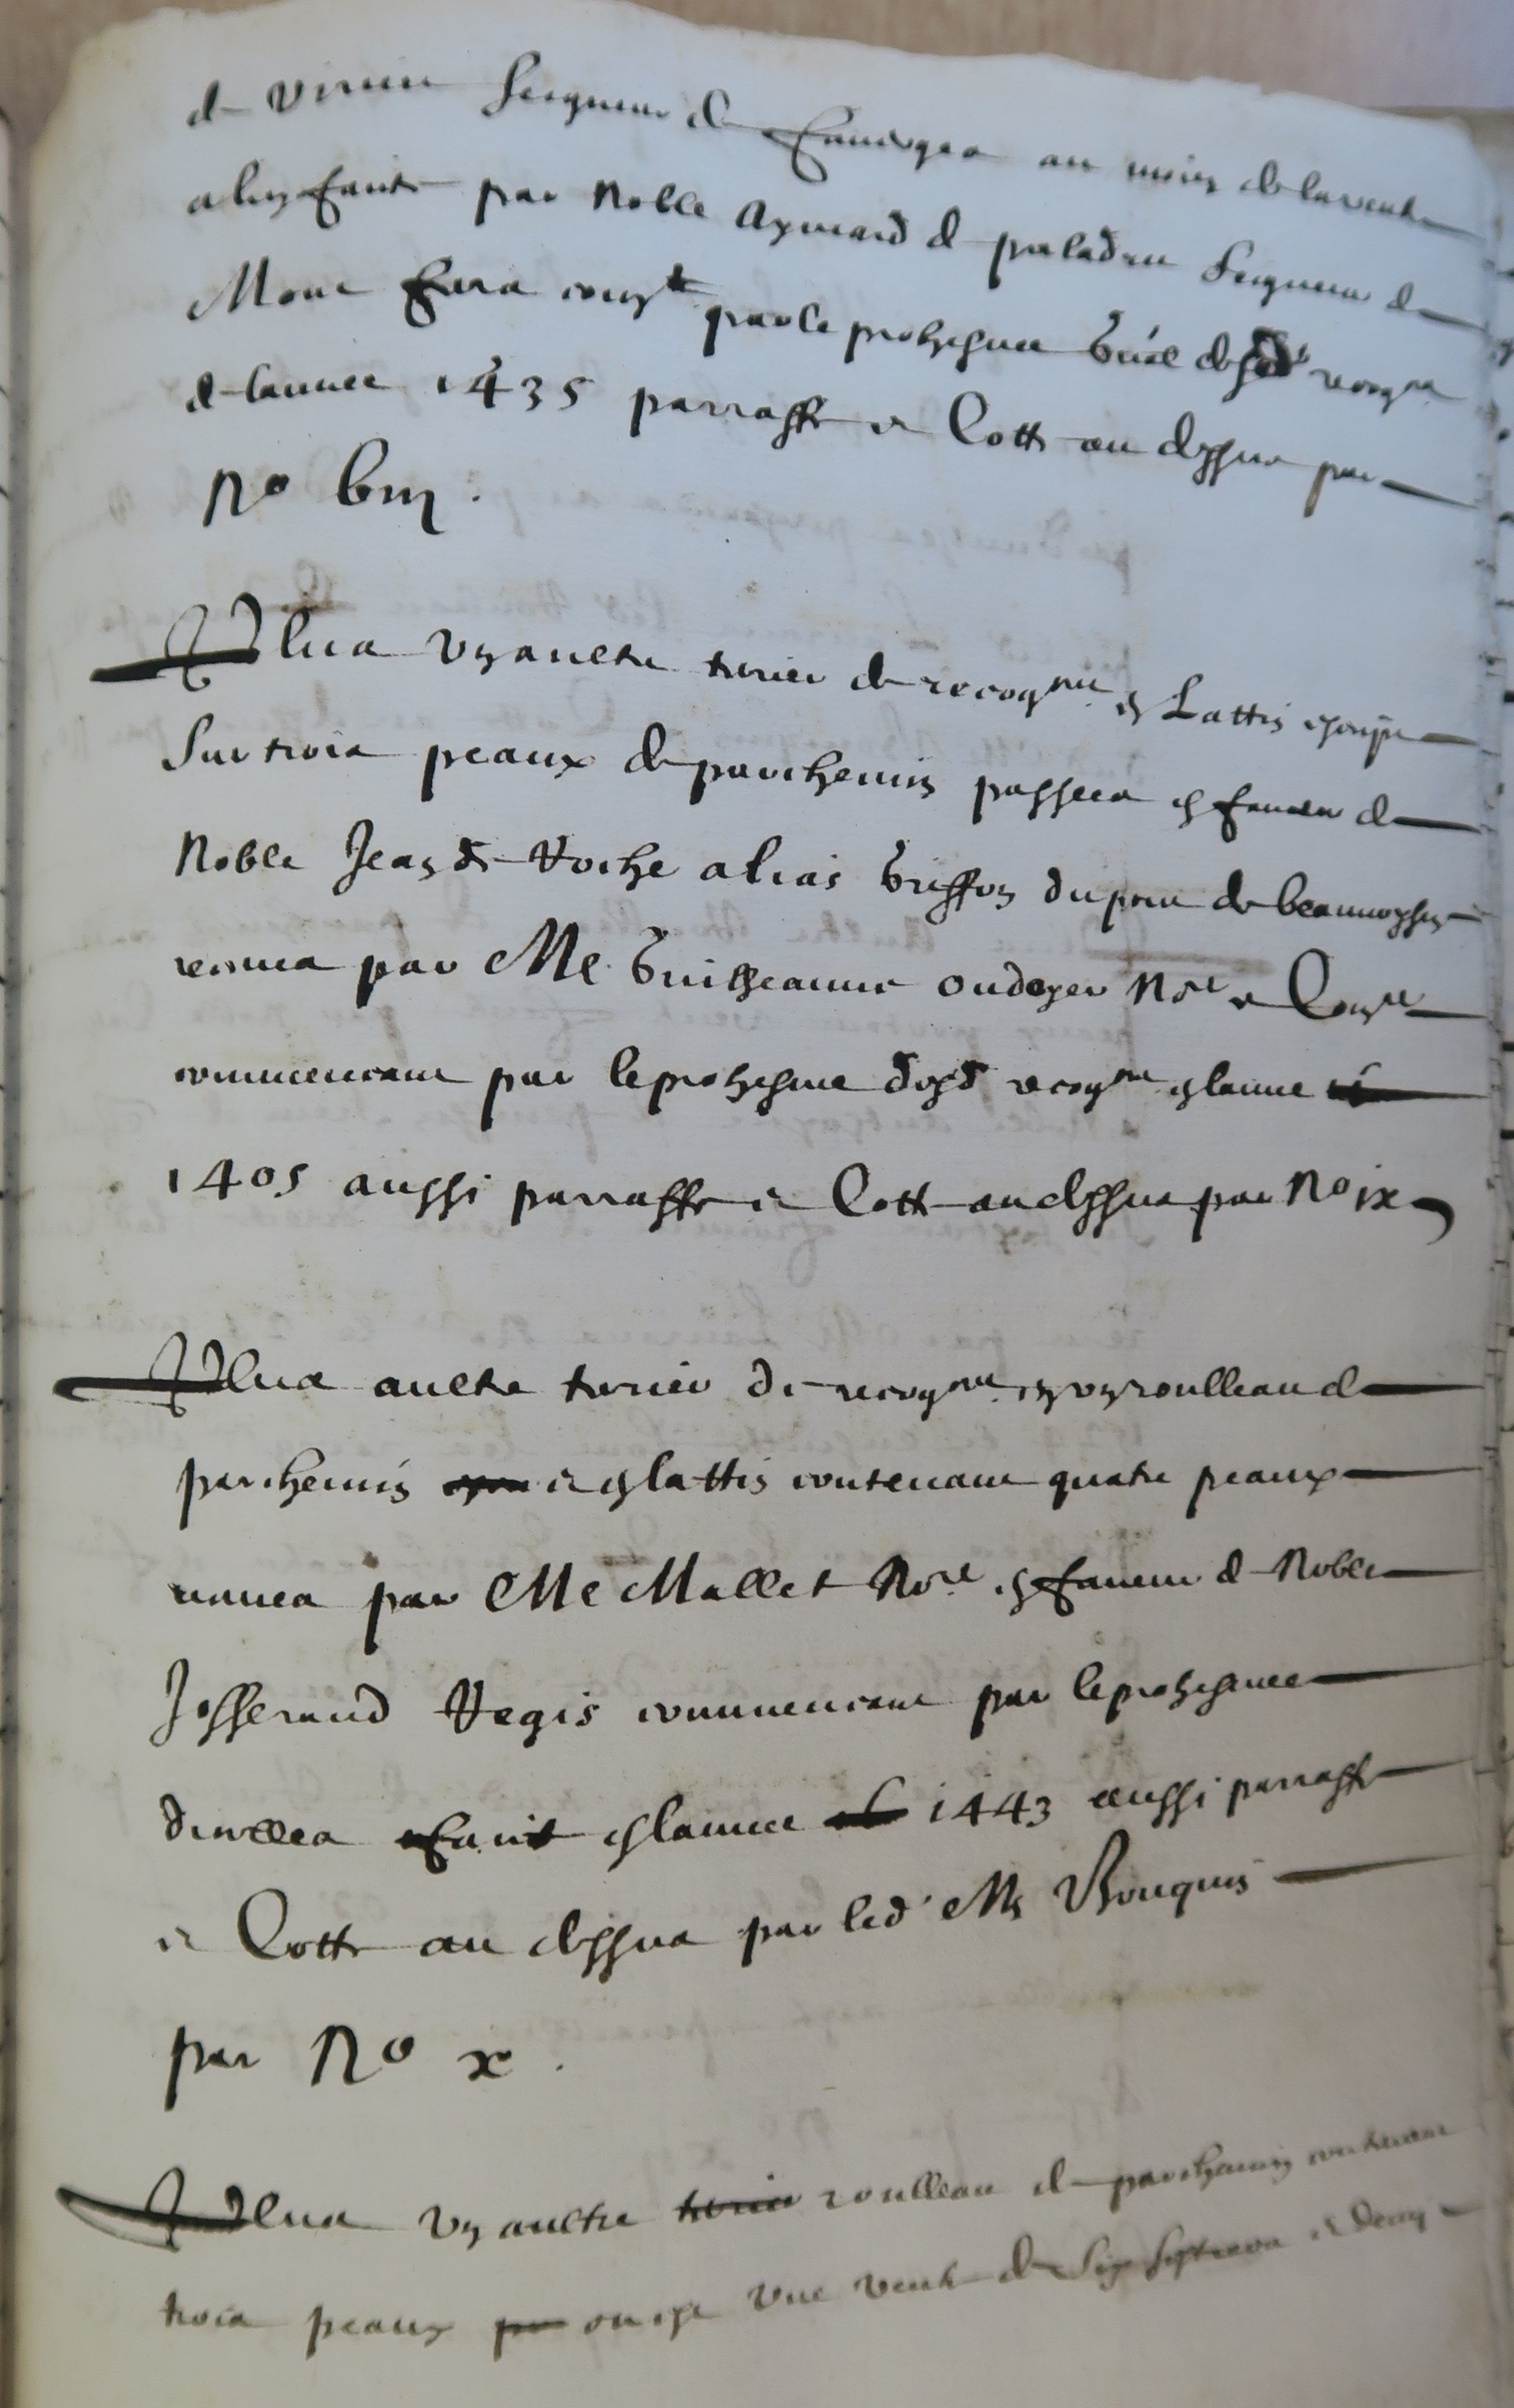 de Virieu Seigneur de Faverges au moien de la vente
a luy faicte par Noble Aymard de paladru Seigneur de
Mont
de lannee 1435 parraffe et Cotte au dessus par
No viij.
Plus vng aultre terrier de recognces en Lattin escript
Sur trois peaux de parchemin passees en faveur de
Noble Jean de Roche alias Griffon du pont de beauvoysin
receues par Me Guilheaume ondoyer Nore et Comre
commencant par le prohesme desd recognces en lannee
1405 aussi parraffe et Cotte au dessus par No ix
Plus aultre terrier de recognces en vng roulleau de
parchemin et en lattin contenant quatre peaux
receues par Me Mallet Nore en faveur de Noble
Josserand Regis commencant par le prohesme
dicelles faict en lannee 1443 aussi parraffe
et Cotte au dessus par led Me Bouquin
par No x.
Plus vng aultre terrier roulleau de parchemin contenant
trois peaux ou est une vente de Six septiers et demy